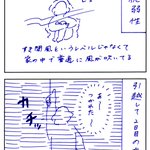 弱性
すき間風というレベルじゃなくて
家の中で普通に風が吹いてる
引越して2日目の
は〜
つかれた〜